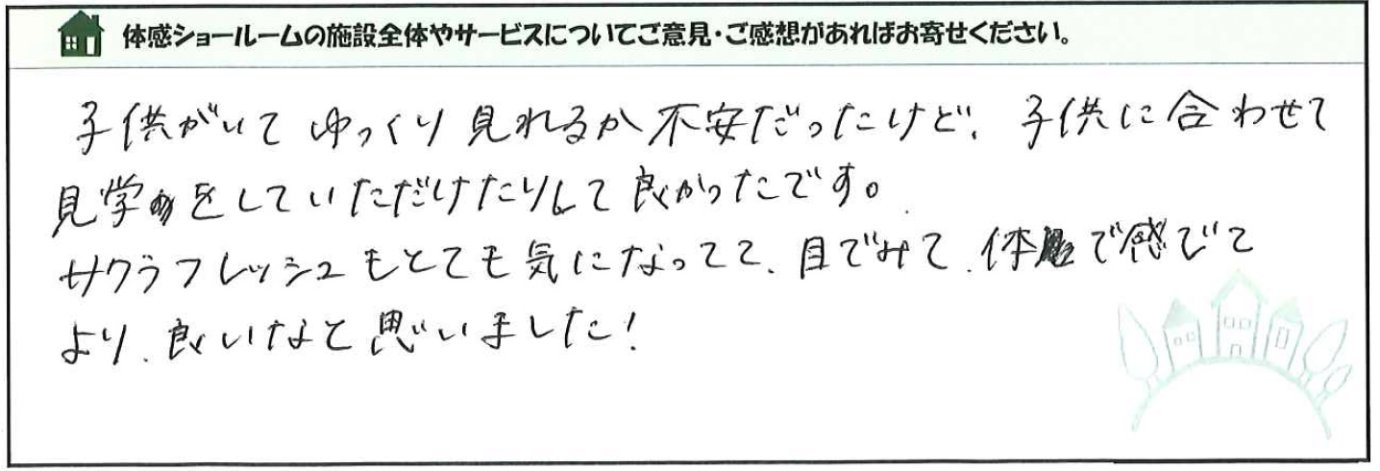 体感ショールームの施設全体やサービスについてご意見・ご感想があればお寄せください。
子供がいてゆっくり見れるか不安だったけど、子供に合わせて
見学をしていただけたりして良かったです。
サクラフレッシュもとても気になってて、目でみて、体で感じて
より、良いなと思いました!